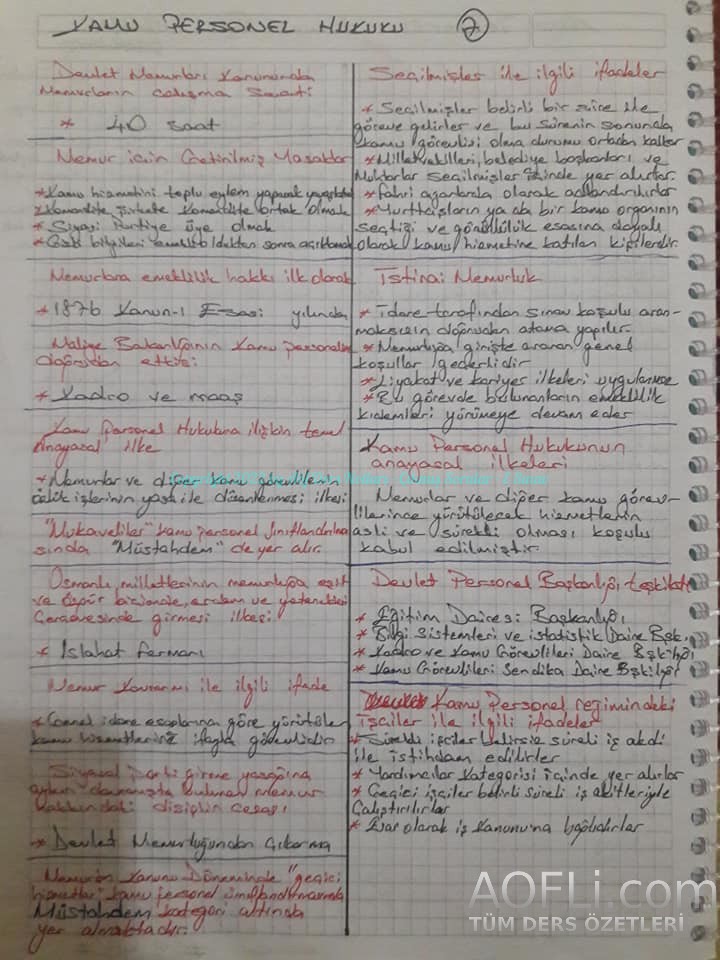 KAMU PERSONEL HUKUKU 7
Devlet Memurları Kanununda
Memurların çalışma saati
* 40 saat
Memur için Getirilmiş Yasaklar
* Kamu hizmetini toplu eylem yaparak
* Komandite şirkette Komandite ortak olmak
* Siyasi Partiye üye olmak
* Gizli bilgileri oldukten sonra açıklamak
Memurlara emeklilik hakkı ilk olarak
* 1876 Kanun-ı Esasi yılında
Maliye Bakanlığının Kamu personeline
doğrudan ettiği
* Kadro ve maaş
Kamu Personel Hukukuna ilişkin temel
Anayasal ilke
* Memurlar ve diğer kamu görevlilerinin
özlük işlerinin yasa ile düzenlenmesi ilkesi
"Mukaveliler" kamu personel sınıflandırılma
sında "Müstahdem" de yer alır.
Osmanlı milletlerinin memurluğa eşit
ve özgür biçimde, erdem ve yetenekleri
Çerçevesinde girmesi ilkesi
* Islahat fermanı
Memur Kavramı ile ilgili ifade
* Genel idare esaplarına göre yürütülen
kamu hizmetlerini ifayla görevlidir
Siyasal Parti girme yasağına
aykırı davranışta bulunan memur
hakkındaki disiplin cezası
* Devlet Memurluğundan Çıkarma
Memurin Kanunu Döneminde "geçici
hizmetliler" kamu personel sınıflandırmasında
Müstahdem kategori altında
yer almaktadır.
Seçilmişler ile ilgili ifadeler
* Seçilmişler belirli bir süre ile
göreve gelirler ve bu sürenin sonunda
kamu görevlisi olma durumu ortadan kalkar
* Milletvekilleri, belediye başkanları ve
Muhtarlar seçilmişler içinde yer alırlar.
* fahri ajanlarda olarak adlandırılırlar
* Yurttaşların ya da bir kamu organının
seçtiği ve gönüllülük esasına dayalı
olarak kamu hizmetine katılan kişilerdir.
İstinai Memurluk
* İdare tarafından sınav koşulu aran-
maksızın doğrudan atama yapılır.
* Memurluğa girişte aranan genel
koşullar geçerlidir
* Liyakat ve kariyer ilkeleri uygulanmaz
* Bu görevde bulunanların emeklilik
kıdemleri yürümeye devam eder
Kamu Personel Hukukunun
anayasal ilkeleri
Memurlar ve diğer kamu görev-
lilerince yürütülecek hizmetlerin
asli ve sürekli olması koşulu
kabul edilmiştir
Devlet Personel Başkanlığı teşkilatı
* Eğitim Dairesi Başkanlığı
* Bilgi Sistemleri ve istatistik Daire Bşk.
* Kadro ve Kamu Görevlileri Daire Bşk'lığı
* Kamu Görevlileri Sendika Daire Bşk'lığı
Kamu Personel rejimindeki
işçiler ile ilgili ifadeler
* Sürekli işçiler belirsiz süreli iş akdi
ile istihdam edilirler
* Yardımcılar kategorisi içinde yer alırlar
* Geçici işçiler belirli süreli iş akitleriyle
Çalıştırılırlar
* olarak iş Kanunu'na bağlıdırlar
AOFLi.com
TÜM DERS ÖZETLERİ